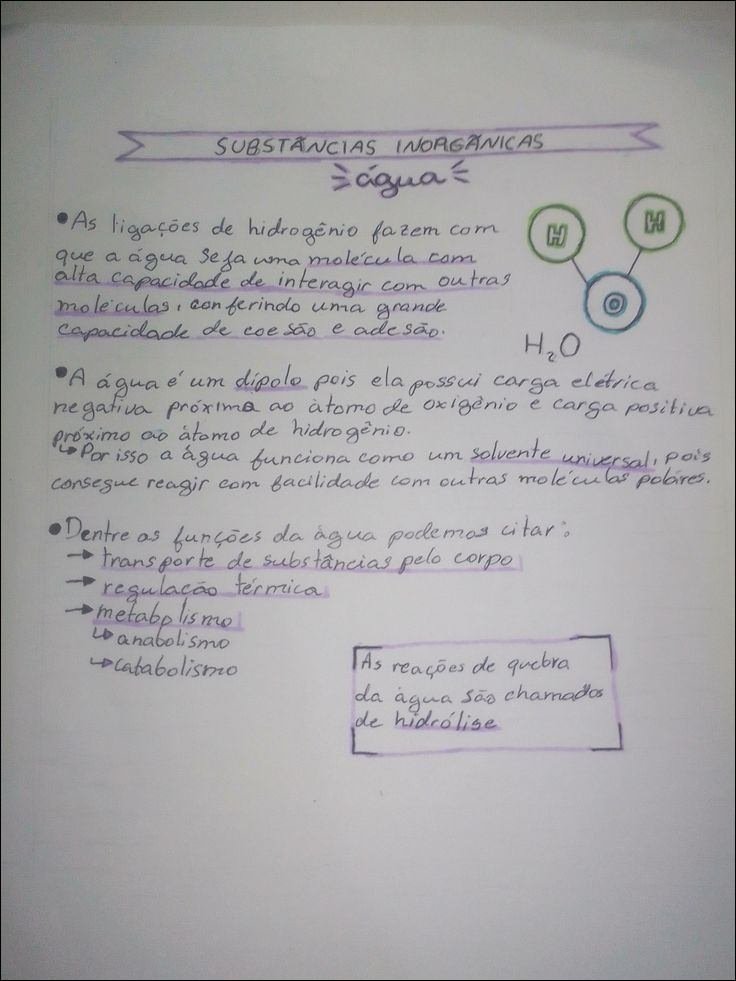 SUBSTÂNCIAS INORGÂNICAS
água
•As ligações de hidrogênio fazem com
que a água seja uma molécula com
alta capacidade de interagir com outras
moléculas, conferindo uma grande
capacidade de coesão e adesão.
H H
O
H₂O
•A água é um dípolo pois ela possui carga elétrica
negativa próxima ao átomo de oxigênio e carga positiva
próximo ao átomo de hidrogênio.
↳Por isso a água funciona como um solvente universal, pois
consegue reagir com facilidade com outras moléculas polares.
•Dentre as funções da água podemos citar:
→ transporte de substâncias pelo corpo
→ regulação térmica
→ metabolismo
↳anabolismo
↳catabolismo
As reações de quebra
da água são chamados
de hidrólise